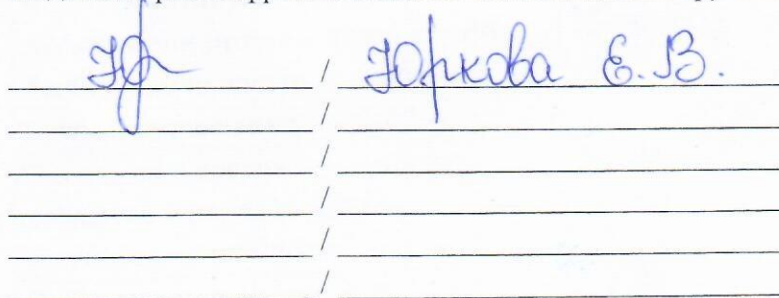 / Юркова Е.В.
/
/
/
/
/